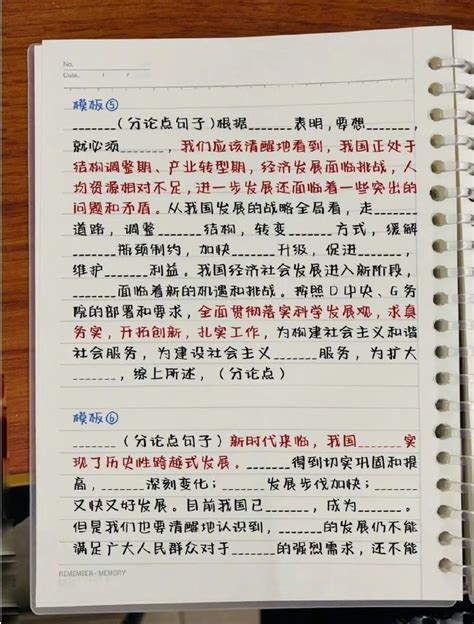 No.
Date. / /
模板⑤
______(分论点句子)根据______表明,要想______,
就必须______,我们应该清醒地看到,我国正处于
结构调整期、产业转型期,经济发展面临挑战,人
均资源相对不足,进一步发展还面临着一些突出的
问题和矛盾。从我国发展的战略全局看,走______
道路,调整______结构,转变______方式,缓解
______瓶颈制约,加快______升级,促进______,
维护______利益。我国经济社会发展进入新阶段,
______面临着新的机遇和挑战。按照D中央、G务
院的部署和要求,全面贯彻落实科学发展观,求真
务实,开拓创新,扎实工作,为构建社会主义和谐
社会服务,为建设社会主义______服务,为扩大
______,综上所述,(分论点)
模板⑥
______(分论点句子)新时代来临,我国______实
现了历史性跨越式发展。______得到切实巩固和提
高,______深刻变化;______发展步伐加快;______
又快又好发展。目前我国已______,成为______。
但是我们也要清醒地认识到,______的发展仍不能
满足广大人民群众对于______的强烈需求,还不能
REMEMBER·MEMORY